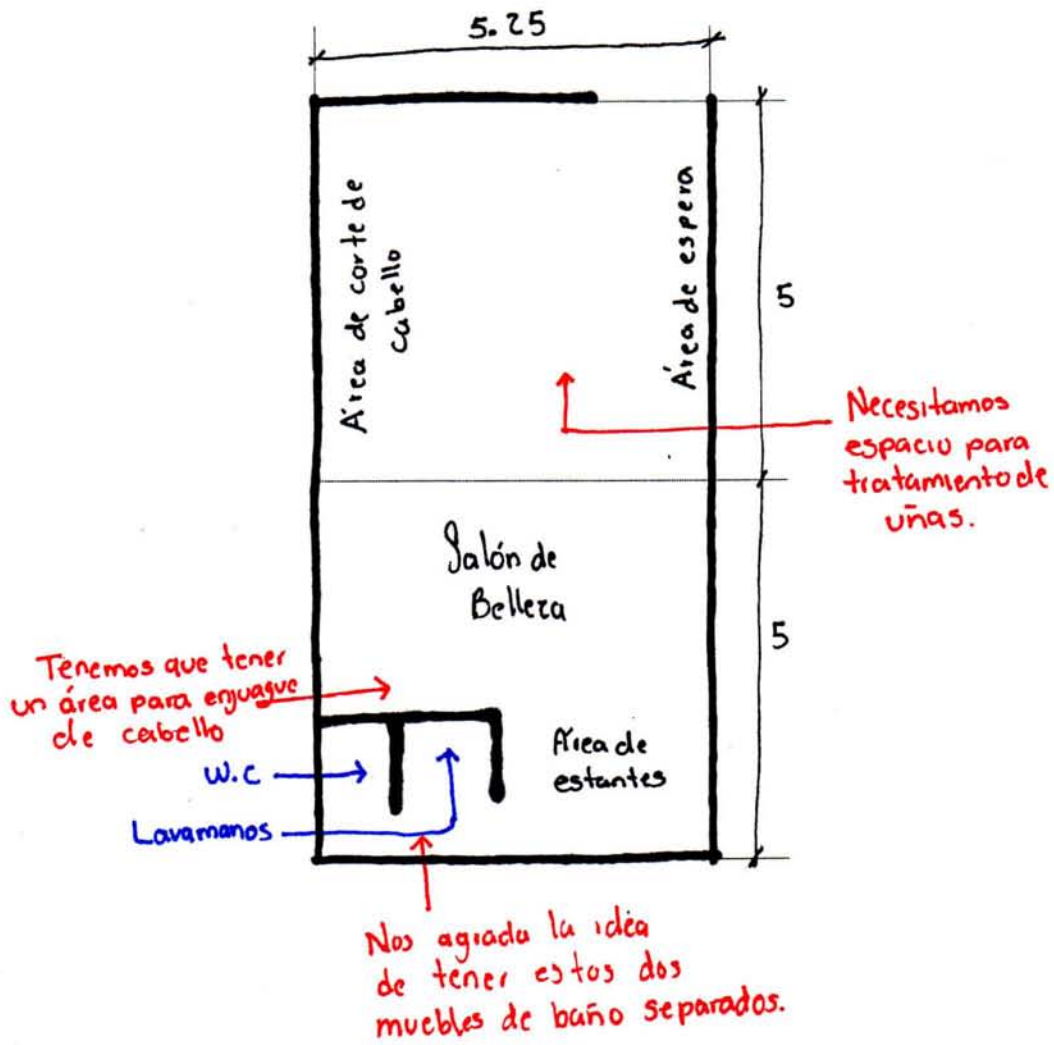 5.25
Área de corte de
cabello
Área de espera
5
Necesitamos
espacio para
tratamiento de
uñas.
Salón de
Belleza
5
Tenemos que tener
un área para enjuague
de cabello
W.C
Lavamanos
Área de
estantes
Nos agrada la idea
de tener estos dos
muebles de baño separados.